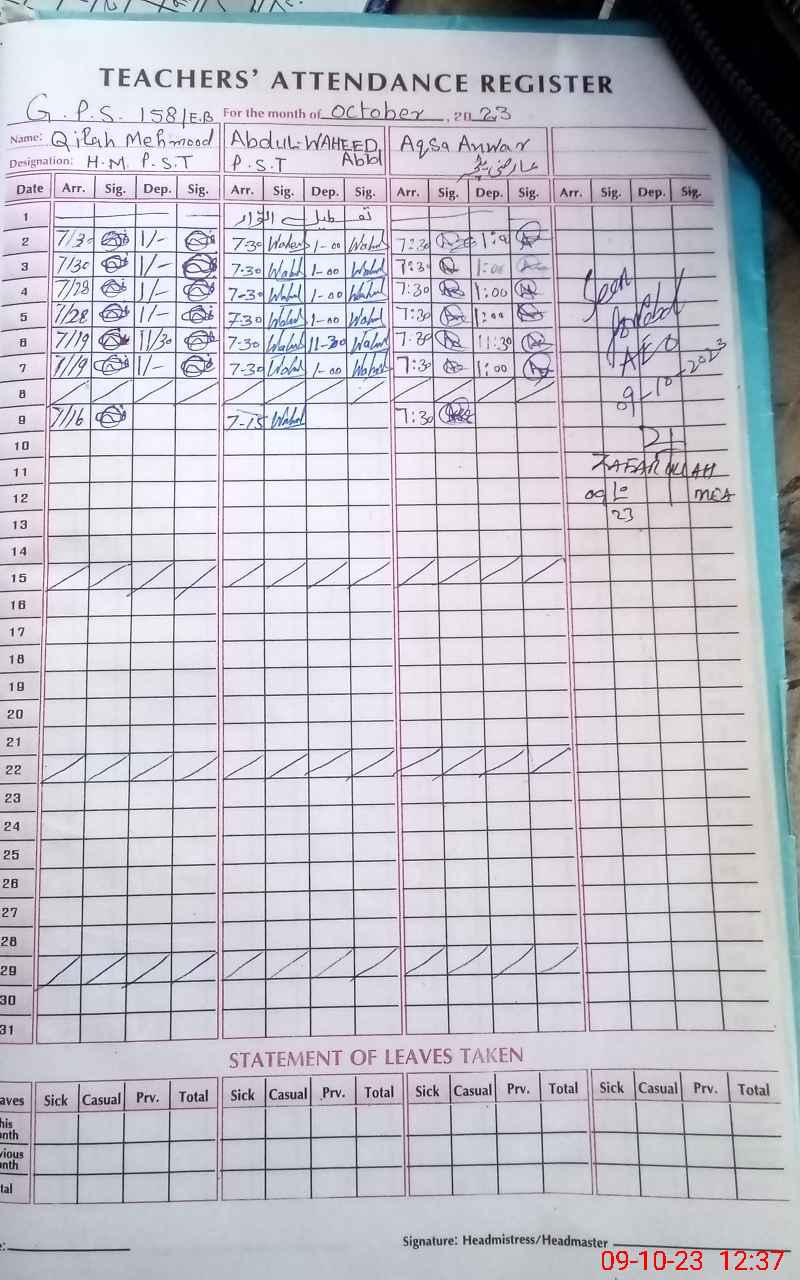 TEACHERS' ATTENDANCE REGISTER
G. P.S. 158/E.B For the month of October, 2023
Name: Qilah Mehmood Abdul-WAHEED Aqsa Anwar
Designation: H.M. P.S.T P.S.T Abld عارضی ٹیچر
Date Arr. Sig. Dep. Sig. Arr. Sig. Dep. Sig. Arr. Sig. Dep. Sig. Arr. Sig. Dep. Sig.
1 تعطیل اتوار
2 7/30 1/- 7-30 Wahed 1-00 Wahd 7:30 1:00
3 7/30 1/- 7-30 Wahd 1-00 Wahd 7:30 1:00
4 7/28 1/- 7-30 Wahd 1-00 Wahd 7:30 1:00 Seen
5 7/28 1/- 7-30 Wahd 1-00 Wahd 7:30 1:00
6 7/19 11/30 7-30 Wahd 11-30 Wahd 7:30 11:30 AEO
7 7/19 1/- 7-30 Wahd 1-00 Wahd 7:30 1:00 09-10-2023
8
9 7/16 7-15 Wahd 7:30
10
11 ZAFAR ULLAH
12 09 10 MEA
13 23
14
15
16
17
18
19
20
21
22
23
24
25
26
27
28
29
30
31
STATEMENT OF LEAVES TAKEN
aves Sick Casual Prv. Total Sick Casual Prv. Total Sick Casual Prv. Total Sick Casual Prv. Total
his
onth
vious
nth
tal
e: Signature: Headmistress/Headmaster
09-10-23 12:37